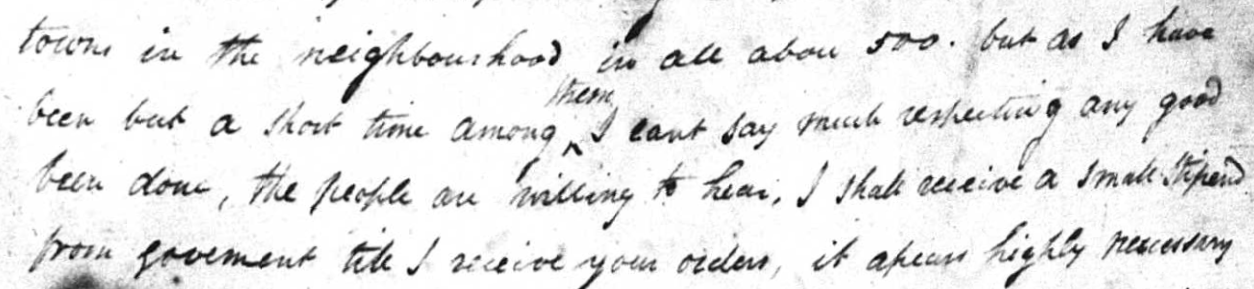 towns in the neighbourhood in all abou 500. but as I have
been but a short time among ^them, I cant say much respecting any good
been done, the people are willing to hear, I shall receive a small stipend
from goverment till I receive your orders, it apears highly necessary